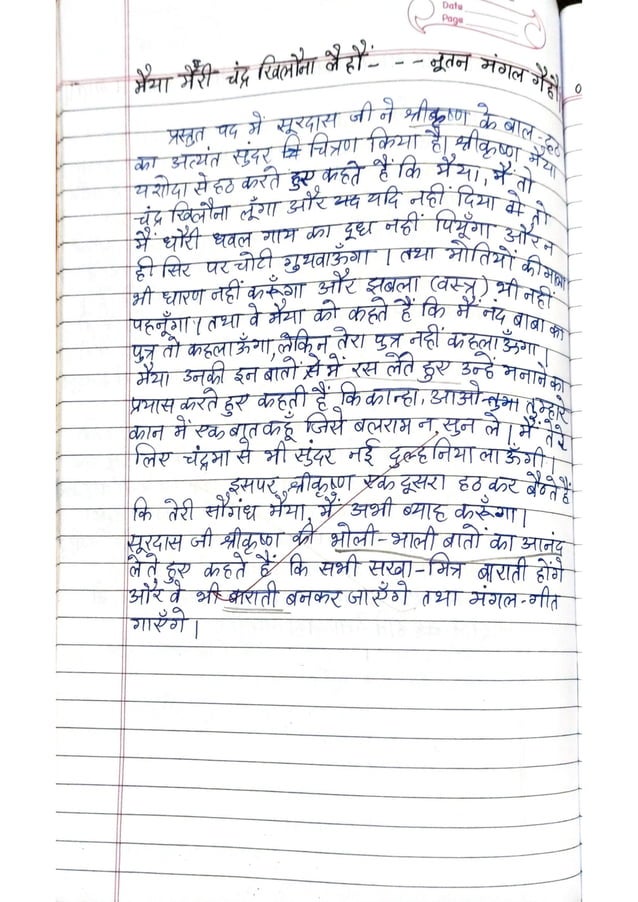 Date
Page
मैया मैंरी चंद्र खिलौना लैहौं - - - नूतन मंगल गैहौं
प्रस्तुत पद में सूरदास जी ने श्रीकृष्ण के बाल-हठ
का अत्यंत सुंदर चित्रण किया है। श्रीकृष्ण मैया
यशोदा से हठ करते हुए कहते हैं कि मैया, मैं तो
चंद्र खिलौना लूँगा और यदि नहीं दिया तो
मैं धौरी धवल गाय का दूध नहीं पियूँगा और न
ही सिर पर चोटी गुथवाऊँगा। तथा मोतियों की माला
भी धारण नहीं करूँगा और झबला (वस्त्र) भी नहीं
पहनूँगा। तथा वे मैया को कहते हैं कि मैं नंद बाबा का
पुत्र तो कहलाऊँगा, लेकिन तेरा पुत्र नहीं कहलाऊँगा।
मैया उनकी इन बातों में रस लेते हुए उन्हें मनाने का
प्रयास करते हुए कहती हैं कि कान्हा, आओ तुम्हारे
कान में एक बात कहूँ जिसे बलराम न सुन ले। मैं तेरे
लिए चंद्रमा से भी सुंदर नई दुल्हनिया लाऊँगी।
इसपर श्रीकृष्ण एक दूसरा हठ कर बैठते हैं
कि तेरी सौगंध मैया, मैं अभी ब्याह करूँगा।
सूरदास जी श्रीकृष्ण की भोली-भाली बातों का आनंद
लेते हुए कहते हैं कि सभी सखा-मित्र बाराती होंगे
और वे भी बाराती बनकर जाएँगे तथा मंगल-गीत
गाएँगे।